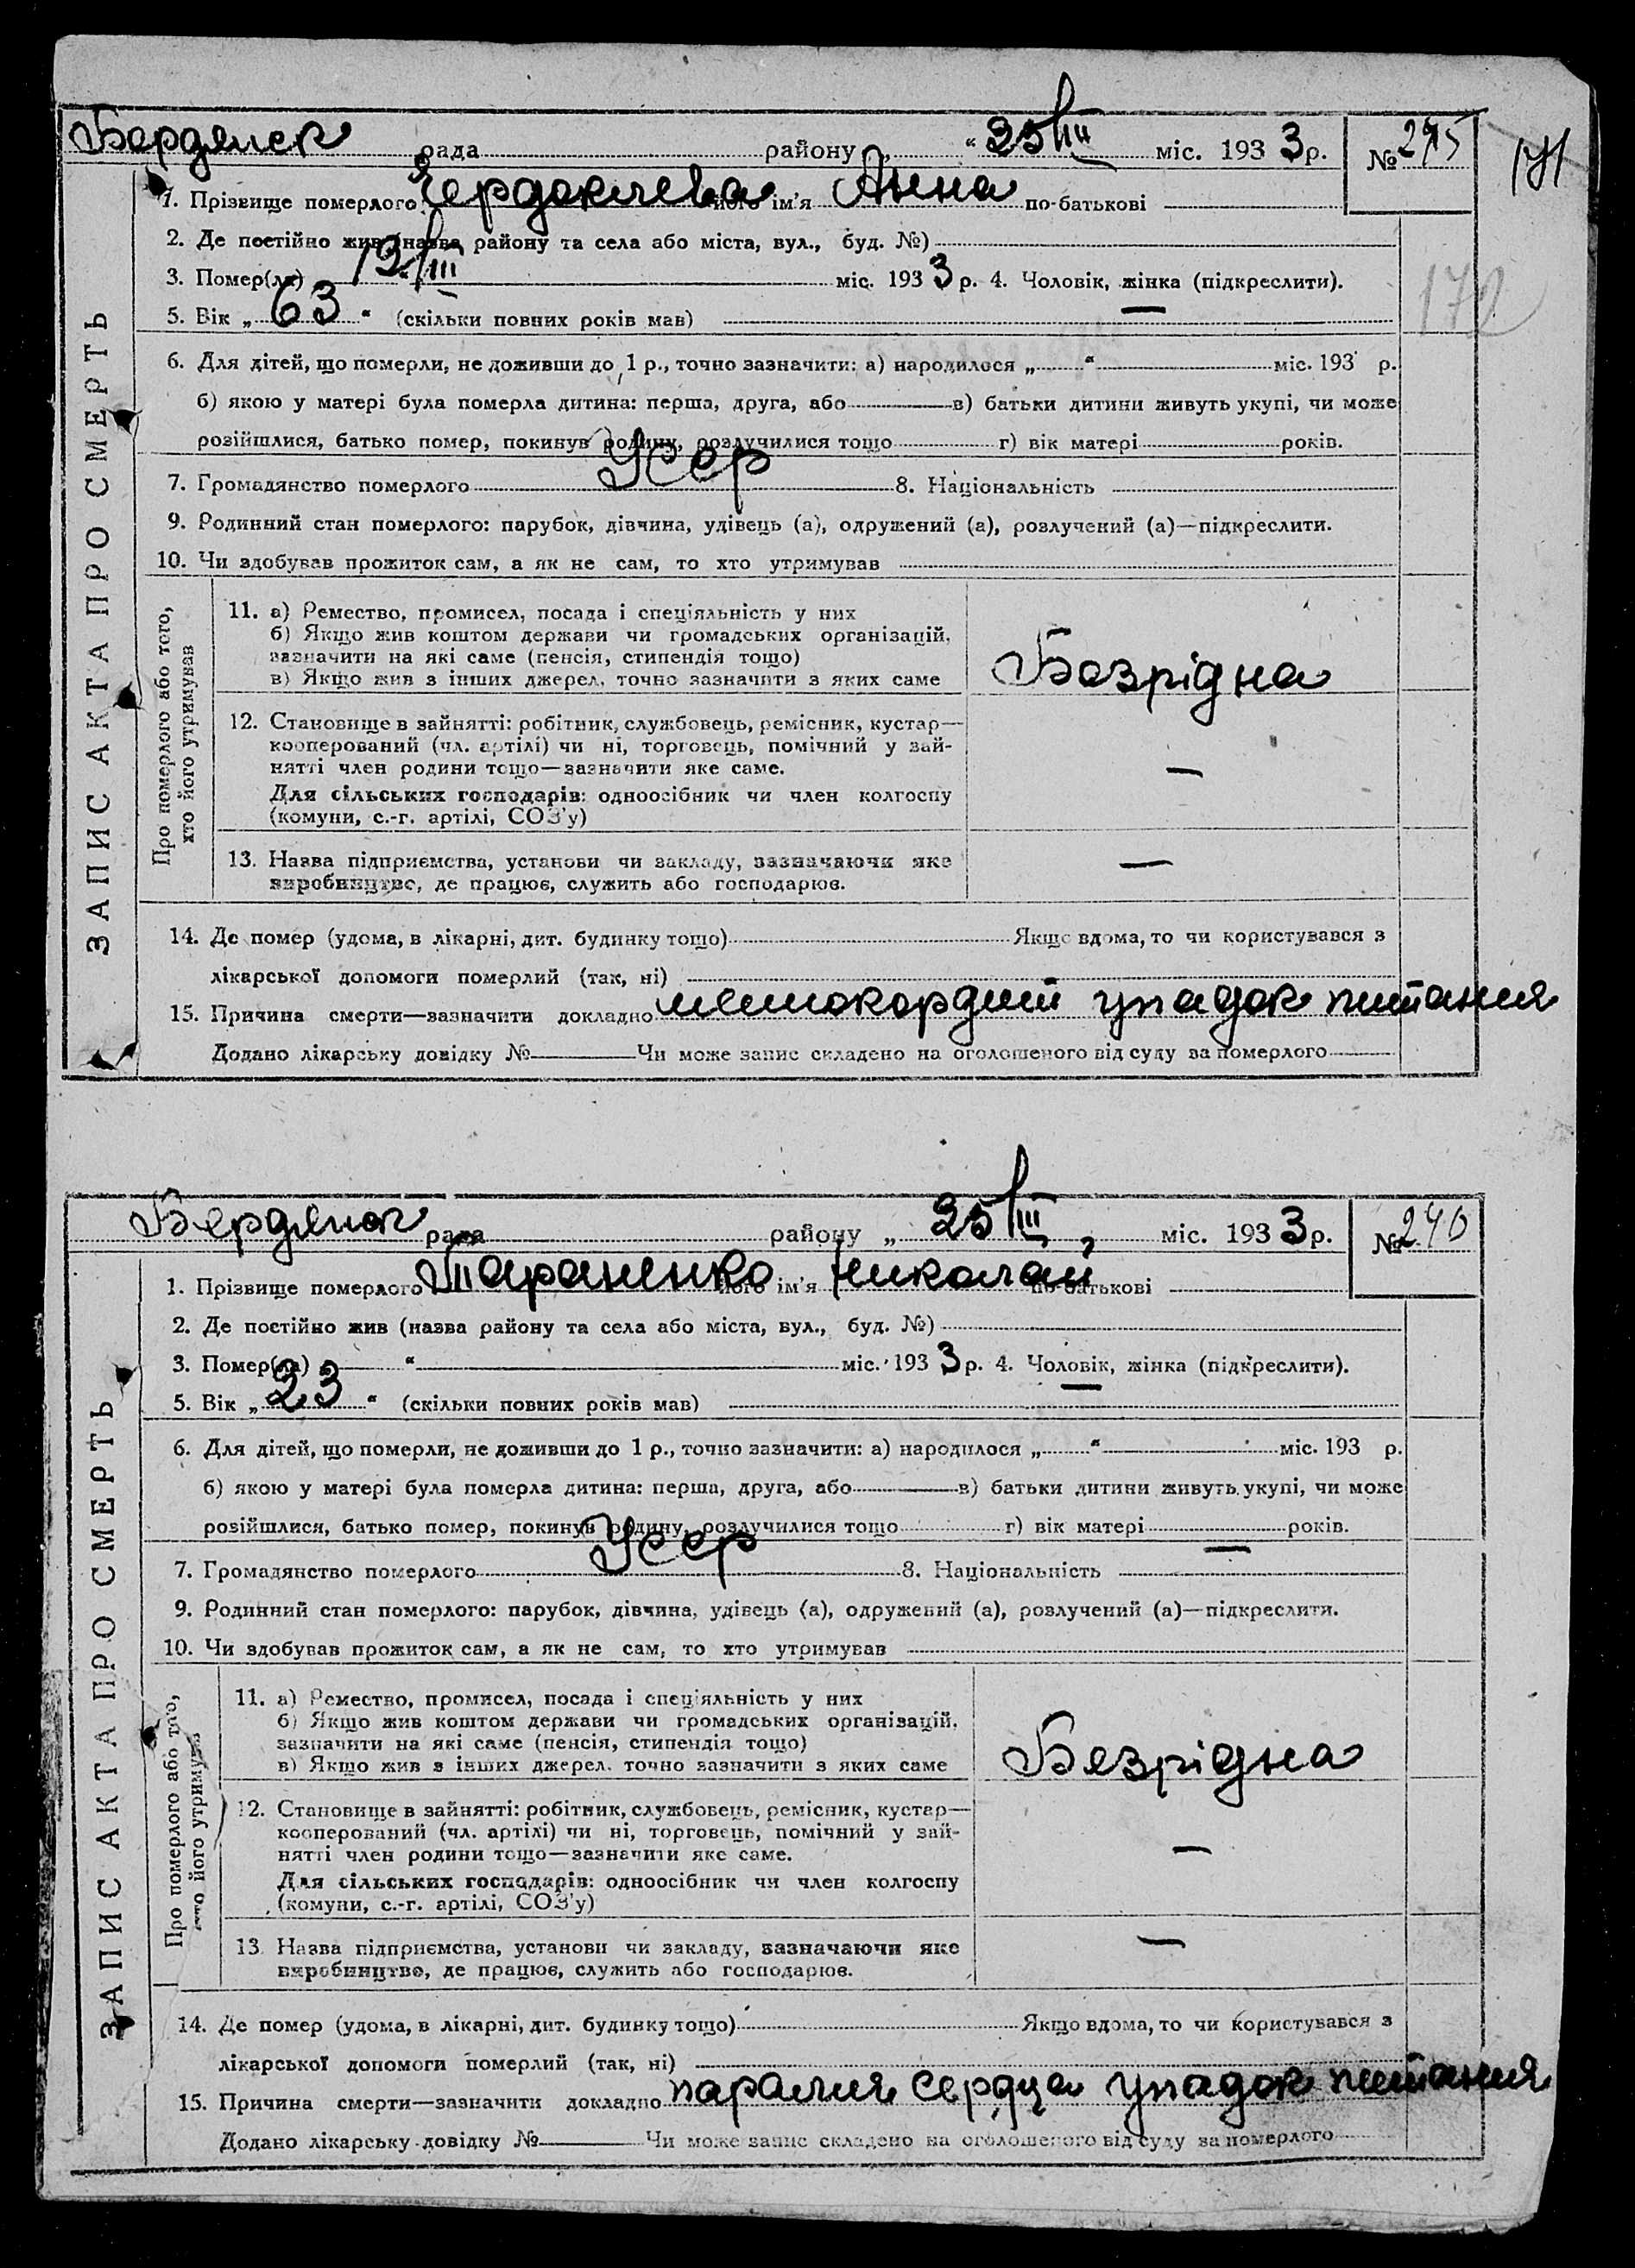 Бердянск рада району „ “ 25/III міс. 193 3 р. № 245
171
1. Прізвище померлого Чердаклева його ім'я Анна по-батькові
2. Де постійно жив (назва району та села або міста, вул., буд. №)
3. Помер(ла) 12/III міс. 193 3 р. 4. Чоловік, жінка (підкреслити).
172
5. Вік „ 63 “ (скільки повних років мав)
6. Для дітей, що померли, не доживши до 1 р., точно зазначити: а) народилося „ “ міс. 193 р.
б) якою у матері була померла дитина: перша, друга, або в) батьки дитини живуть укупі, чи може
розійшлися, батько помер, покинув родину, розлучилися тощо г) вік матері років.
7. Громадянство померлого Усср 8. Національність
9. Родинний стан померлого: парубок, дівчина, удівець (а), одружений (а), розлучений (а)—підкреслити.
10. Чи здобував прожиток сам, а як не сам, то хто утримував
ЗАПИС АКТА ПРО СМЕРТЬ
Про померлого або того,
хто його утримував
11. а) Ремество, промисел, посада і спеціяльність у них
б) Якщо жив коштом держави чи громадських організацій,
зазначити на які саме (пенсія, стипендія тощо)
в) Якщо жив з інших джерел, точно зазначити з яких саме
Безрідна
12. Становище в зайнятті: робітник, службовець, ремісник, кустар—
кооперований (чл. артілі) чи ні, торговець, помічний у зай-
нятті член родини тощо—зазначити яке саме.
Для сільських господарів: одноосібник чи член колгоспу
(комуни, с.-г. артілі, СОЗ'у)
—
13. Назва підприємства, установи чи закладу, зазначаючи яке
виробництво, де працює, служить або господарює.
—
14. Де помер (удома, в лікарні, дит. будинку тощо) Якщо вдома, то чи користувався з
лікарської допомоги померлий (так, ні)
15. Причина смерти—зазначити докладно упадок питания
Додано лікарську довідку № Чи може запис складено на оголошеного від суду за померлого
Бердянск рада району „ 25/III міс. 193 3 р. № 246
1. Прізвище померлого Тараненко його ім'я Николай по-батькові
2. Де постійно жив (назва району та села або міста, вул., буд. №)
3. Помер(ла) “ міс. 193 3 р. 4. Чоловік, жінка (підкреслити).
5. Вік „ 23 “ (скільки повних років мав)
6. Для дітей, що померли, не доживши до 1 р., точно зазначити: а) народилося „ “ міс. 193 р.
б) якою у матері була померла дитина: перша, друга, або в) батьки дитини живуть укупі, чи може
розійшлися, батько помер, покинув родину, розлучилися тощо г) вік матері років.
7. Громадянство померлого Усср 8. Національність —
9. Родинний стан померлого: парубок, дівчина, удівець (а), одружений (а), розлучений (а)—підкреслити.
10. Чи здобував прожиток сам, а як не сам, то хто утримував
ЗАПИС АКТА ПРО СМЕРТЬ
Про померлого або того,
хто його утримував
11. а) Ремество, промисел, посада і спеціяльність у них
б) Якщо жив коштом держави чи громадських організацій,
зазначити на які саме (пенсія, стипендія тощо)
в) Якщо жив з інших джерел, точно зазначити з яких саме
Безрідна
12. Становище в зайнятті: робітник, службовець, ремісник, кустар—
кооперований (чл. артілі) чи ні, торговець, помічний у зай-
нятті член родини тощо—зазначити яке саме.
Для сільських господарів: одноосібник чи член колгоспу
(комуни, с.-г. артілі, СОЗ'у)
—
13. Назва підприємства, установи чи закладу, зазначаючи яке
виробництво, де працює, служить або господарює.
—
14. Де помер (удома, в лікарні, дит. будинку тощо) Якщо вдома, то чи користувався з
лікарської допомоги померлий (так, ні)
15. Причина смерти—зазначити докладно паралич сердца упадок питания
Додано лікарську довідку № Чи може запис складено на оголошеного від суду за померлого